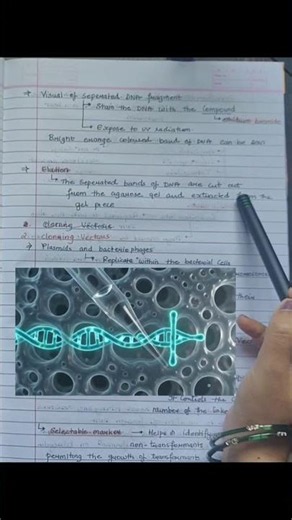 → Visual of Seperated DNA fragment
→ Stain the DNA with the compound
→ ethidium bromide
→ Expose to UV radiation
Bright orange coloured band of DNA can be seen
→ Elution
↳ The seperated bands of DNA are cut out
from the agarose gel and extracted from the
gel piece
2. Cloning Vectors
→ Plasmids and bacteriophages
↳ Replicate within the bacterial cells
It controls the
number of the
↳ Selectable marker → Helps in identify
non-transformants
permiting the growth of transformants